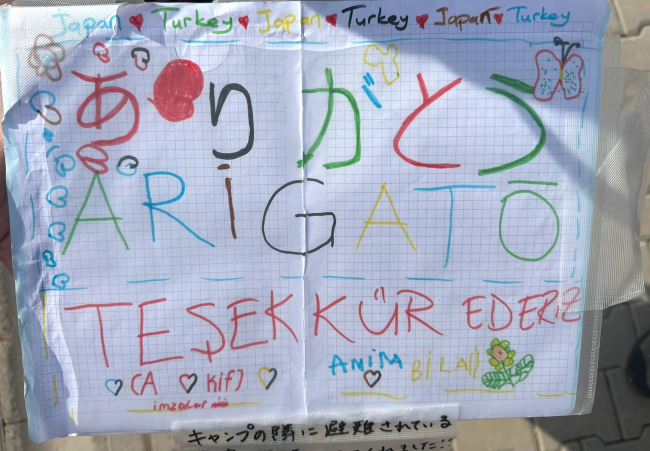 Japan Turkey Japan Turkey Japan Turkey
ありがとう
ARİGATŌ
TEŞEKKÜR EDERİZ
(A Kif) AMİRA BİLAL)
imzalar
キャンプの隣に避難されている